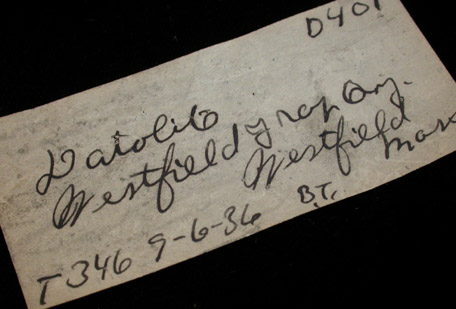 D401
Datolite
Westfield Trap Qry.
Westfield
Mass
T346 9-6-36 B.T.